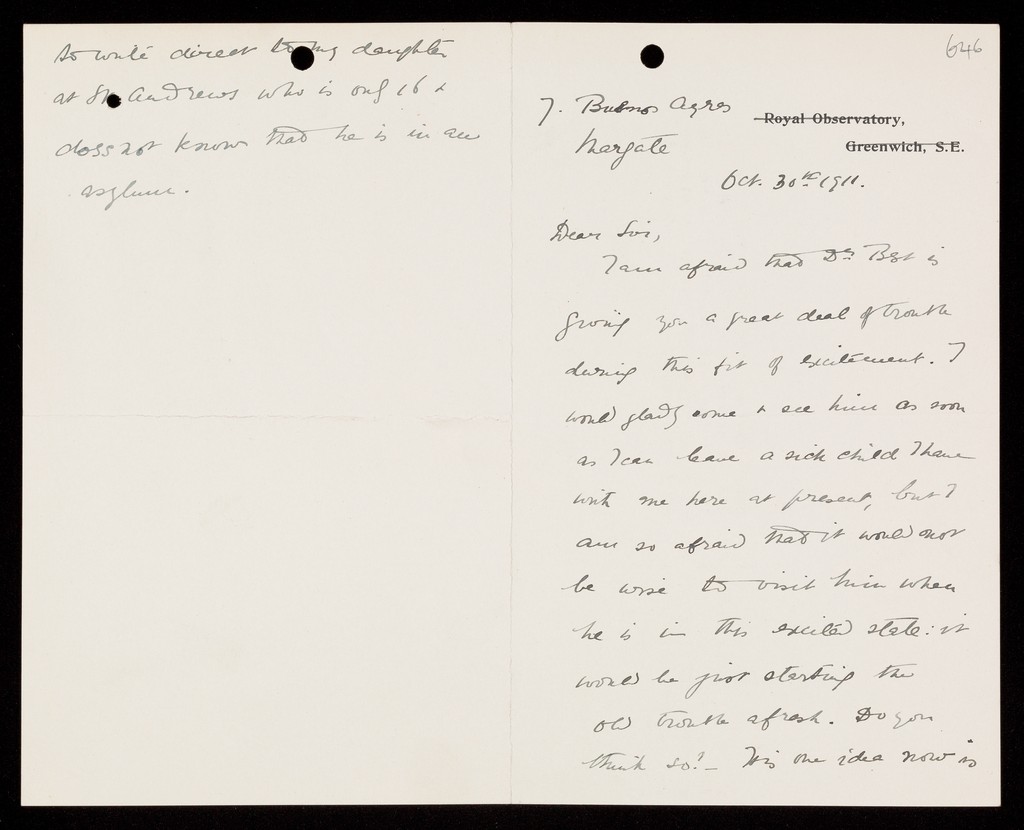 646
7. Buenos Ayres
Royal Observatory,
Margate
Greenwich, S.E.
Oct. 30th 1911.
Dear Sir,
I am afraid that Dr Best is
giving you a great deal of trouble
during this fit of excitement. I
would gladly come & see him as soon
as I can leave a sick child I have
with me here at present, but I
am so afraid that it would not
be wise to visit him when
he is in this excited state: it
would be just starting the
old trouble afresh. Do you
think so? - His one idea now is
to write direct to my daughter
at St. Andrews who is only 16 &
does not know that he is in an
asylum.